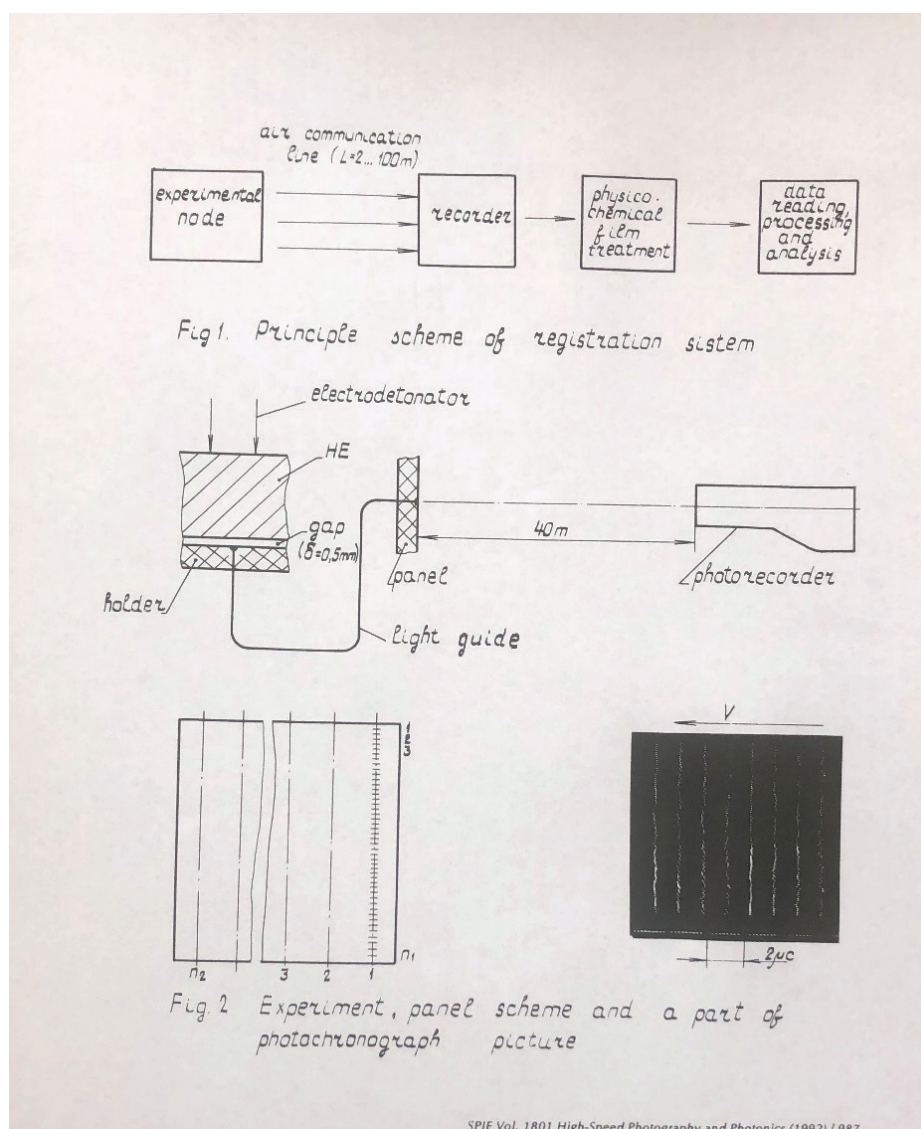 air communication
line (L=2...100m)
experimental
node
recorder
physico-
chemical
film
treatment
data
reading,
processing
and
analysis
Fig 1. Principle scheme of registration sistem
electrodetonator
HE
gap
(δ=0,5mm)
holder
light guide
panel
40m
photorecorder
1
2
3
n₂
3
2
1
n₁
V
2μc
Fig. 2 Experiment, panel scheme and a part of
photochronograph picture
SPIE Vol. 1801 High-Speed Photography and Photonics (1992) / 987